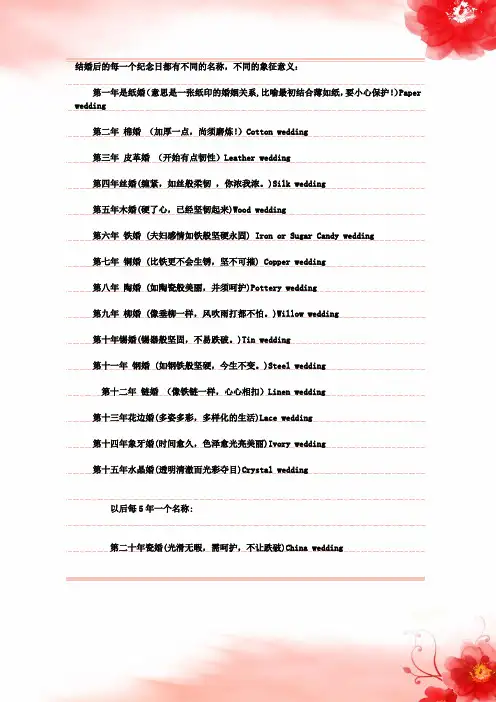 结婚后的每一个纪念日都有不同的名称，不同的象征意义：
第一年是纸婚(意思是一张纸印的婚姻关系,比喻最初结合薄如纸，要小心保护！)Paper
wedding
第二年 棉婚 （加厚一点，尚须磨炼！）Cotton wedding
第三年 皮革婚 （开始有点韧性）Leather wedding
第四年丝婚(缠紧，如丝般柔韧 ，你浓我浓。)Silk wedding
第五年木婚(硬了心，已经坚韧起来)Wood wedding
第六年 铁婚 (夫妇感情如铁般坚硬永固) Iron or Sugar Candy wedding
第七年 铜婚 (比铁更不会生锈，坚不可摧) Copper wedding
第八年 陶婚 (如陶瓷般美丽，并须呵护)Pottery wedding
第九年 柳婚 (像垂柳一样，风吹雨打都不怕。)Willow wedding
第十年锡婚(锡器般坚固，不易跌破。)Tin wedding
第十一年 钢婚 (如钢铁般坚硬，今生不变。)Steel wedding
第十二年 链婚 （像铁链一样，心心相扣）Linen wedding
第十三年花边婚(多姿多彩，多样化的生活)Lace wedding
第十四年象牙婚(时间愈久，色泽愈光亮美丽)Ivory wedding
第十五年水晶婚(透明清澈而光彩夺目)Crystal wedding
以后每 5 年一个名称:
第二十年瓷婚(光滑无暇，需呵护，不让跌破)China wedding